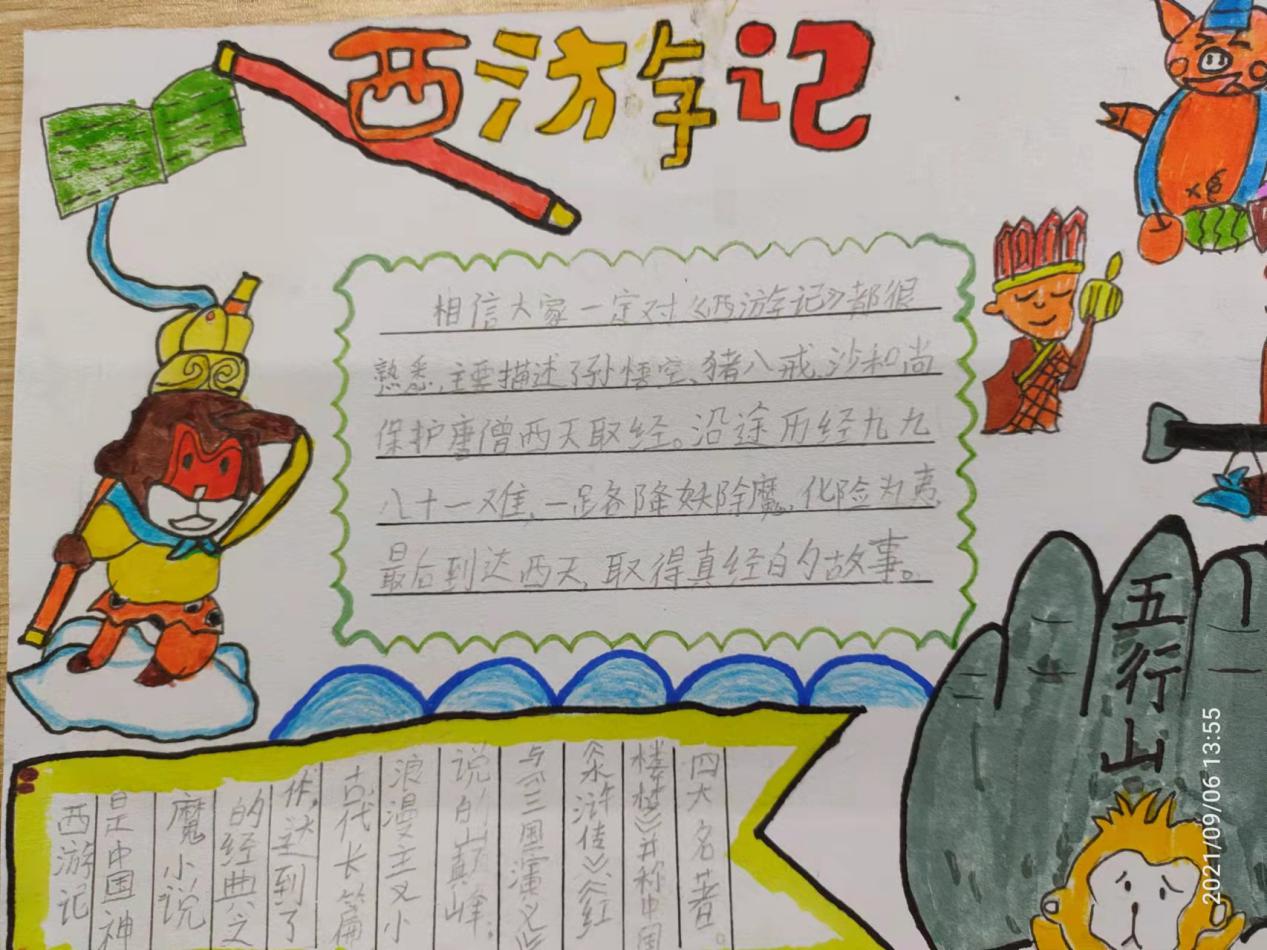 西游记
相信大家一定对《西游记》都很
熟悉,主要描述了孙悟空、猪八戒、沙和尚
保护唐僧西天取经。沿途历经九九
八十一难,一路降妖除魔,化险为夷,
最后到达西天,取得真经的故事。
五行山
西游记
是中国神
魔小说
的经典之
作,达到了
古代长篇
浪漫主义小
说的巅峰,
与《三国演义》
《水浒传》《红
楼梦》并称中国
四大名著。
2021/09/06 13:55